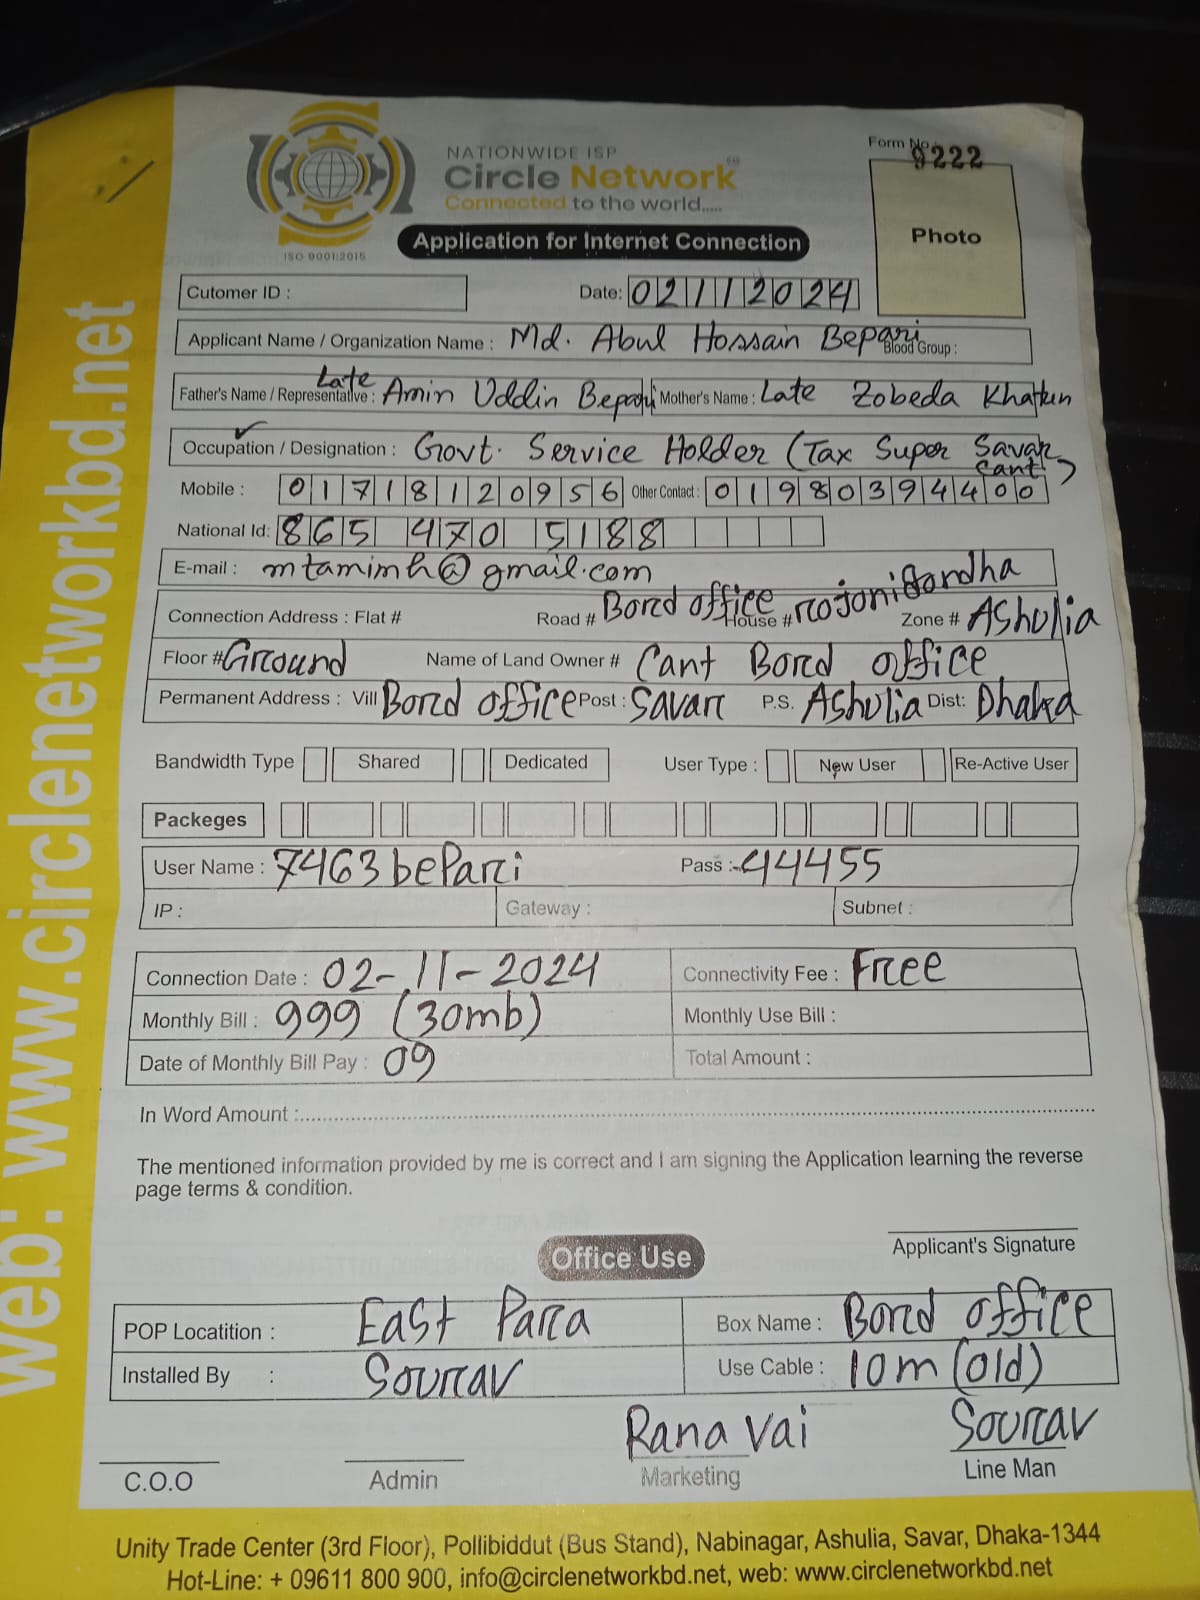 Form No. 9222
NATIONWIDE ISP
Circle Network
Connected to the world.....
ISO 9001:2015
Application for Internet Connection
Photo
Cutomer ID :
Date: 02112024
Applicant Name / Organization Name : Md. Abul Hossain Bepari Blood Group :
Father's Name / Representative : Late Amin Uddin Bepari Mother's Name : Late Zobeda Khatun
Occupation / Designation : Govt. Service Holder (Tax Super Savar Cant)
Mobile : 01718120956 Other Contact : 01980394400
National Id: 865 470 5188
E-mail : mtamimh@gmail.com
Connection Address : Flat # Road # Bord office House # rojonigandha Zone # Ashulia
Floor # Ground Name of Land Owner # Cant Bord office
Permanent Address : Vill Bord office Post : Savar P.S. Ashulia Dist: Dhaka
Bandwidth Type Shared Dedicated User Type : New User Re-Active User
Packeges
User Name : 7463bepari Pass : 44455
IP : Gateway : Subnet :
Connection Date : 02-11-2024 Connectivity Fee : Free
Monthly Bill : 999 (30mb) Monthly Use Bill :
Date of Monthly Bill Pay : 09 Total Amount :
In Word Amount :
The mentioned information provided by me is correct and I am signing the Application learning the reverse
page terms & condition.
Applicant's Signature
Office Use
POP Locatition : East Para Box Name : Bord office
Installed By : Sourav Use Cable : 10m (old)
Rana Vai Sourav
C.O.O Admin Marketing Line Man
Unity Trade Center (3rd Floor), Pollibiddut (Bus Stand), Nabinagar, Ashulia, Savar, Dhaka-1344
Hot-Line: + 09611 800 900, info@circlenetworkbd.net, web: www.circlenetworkbd.net
web: www.circlenetworkbd.net